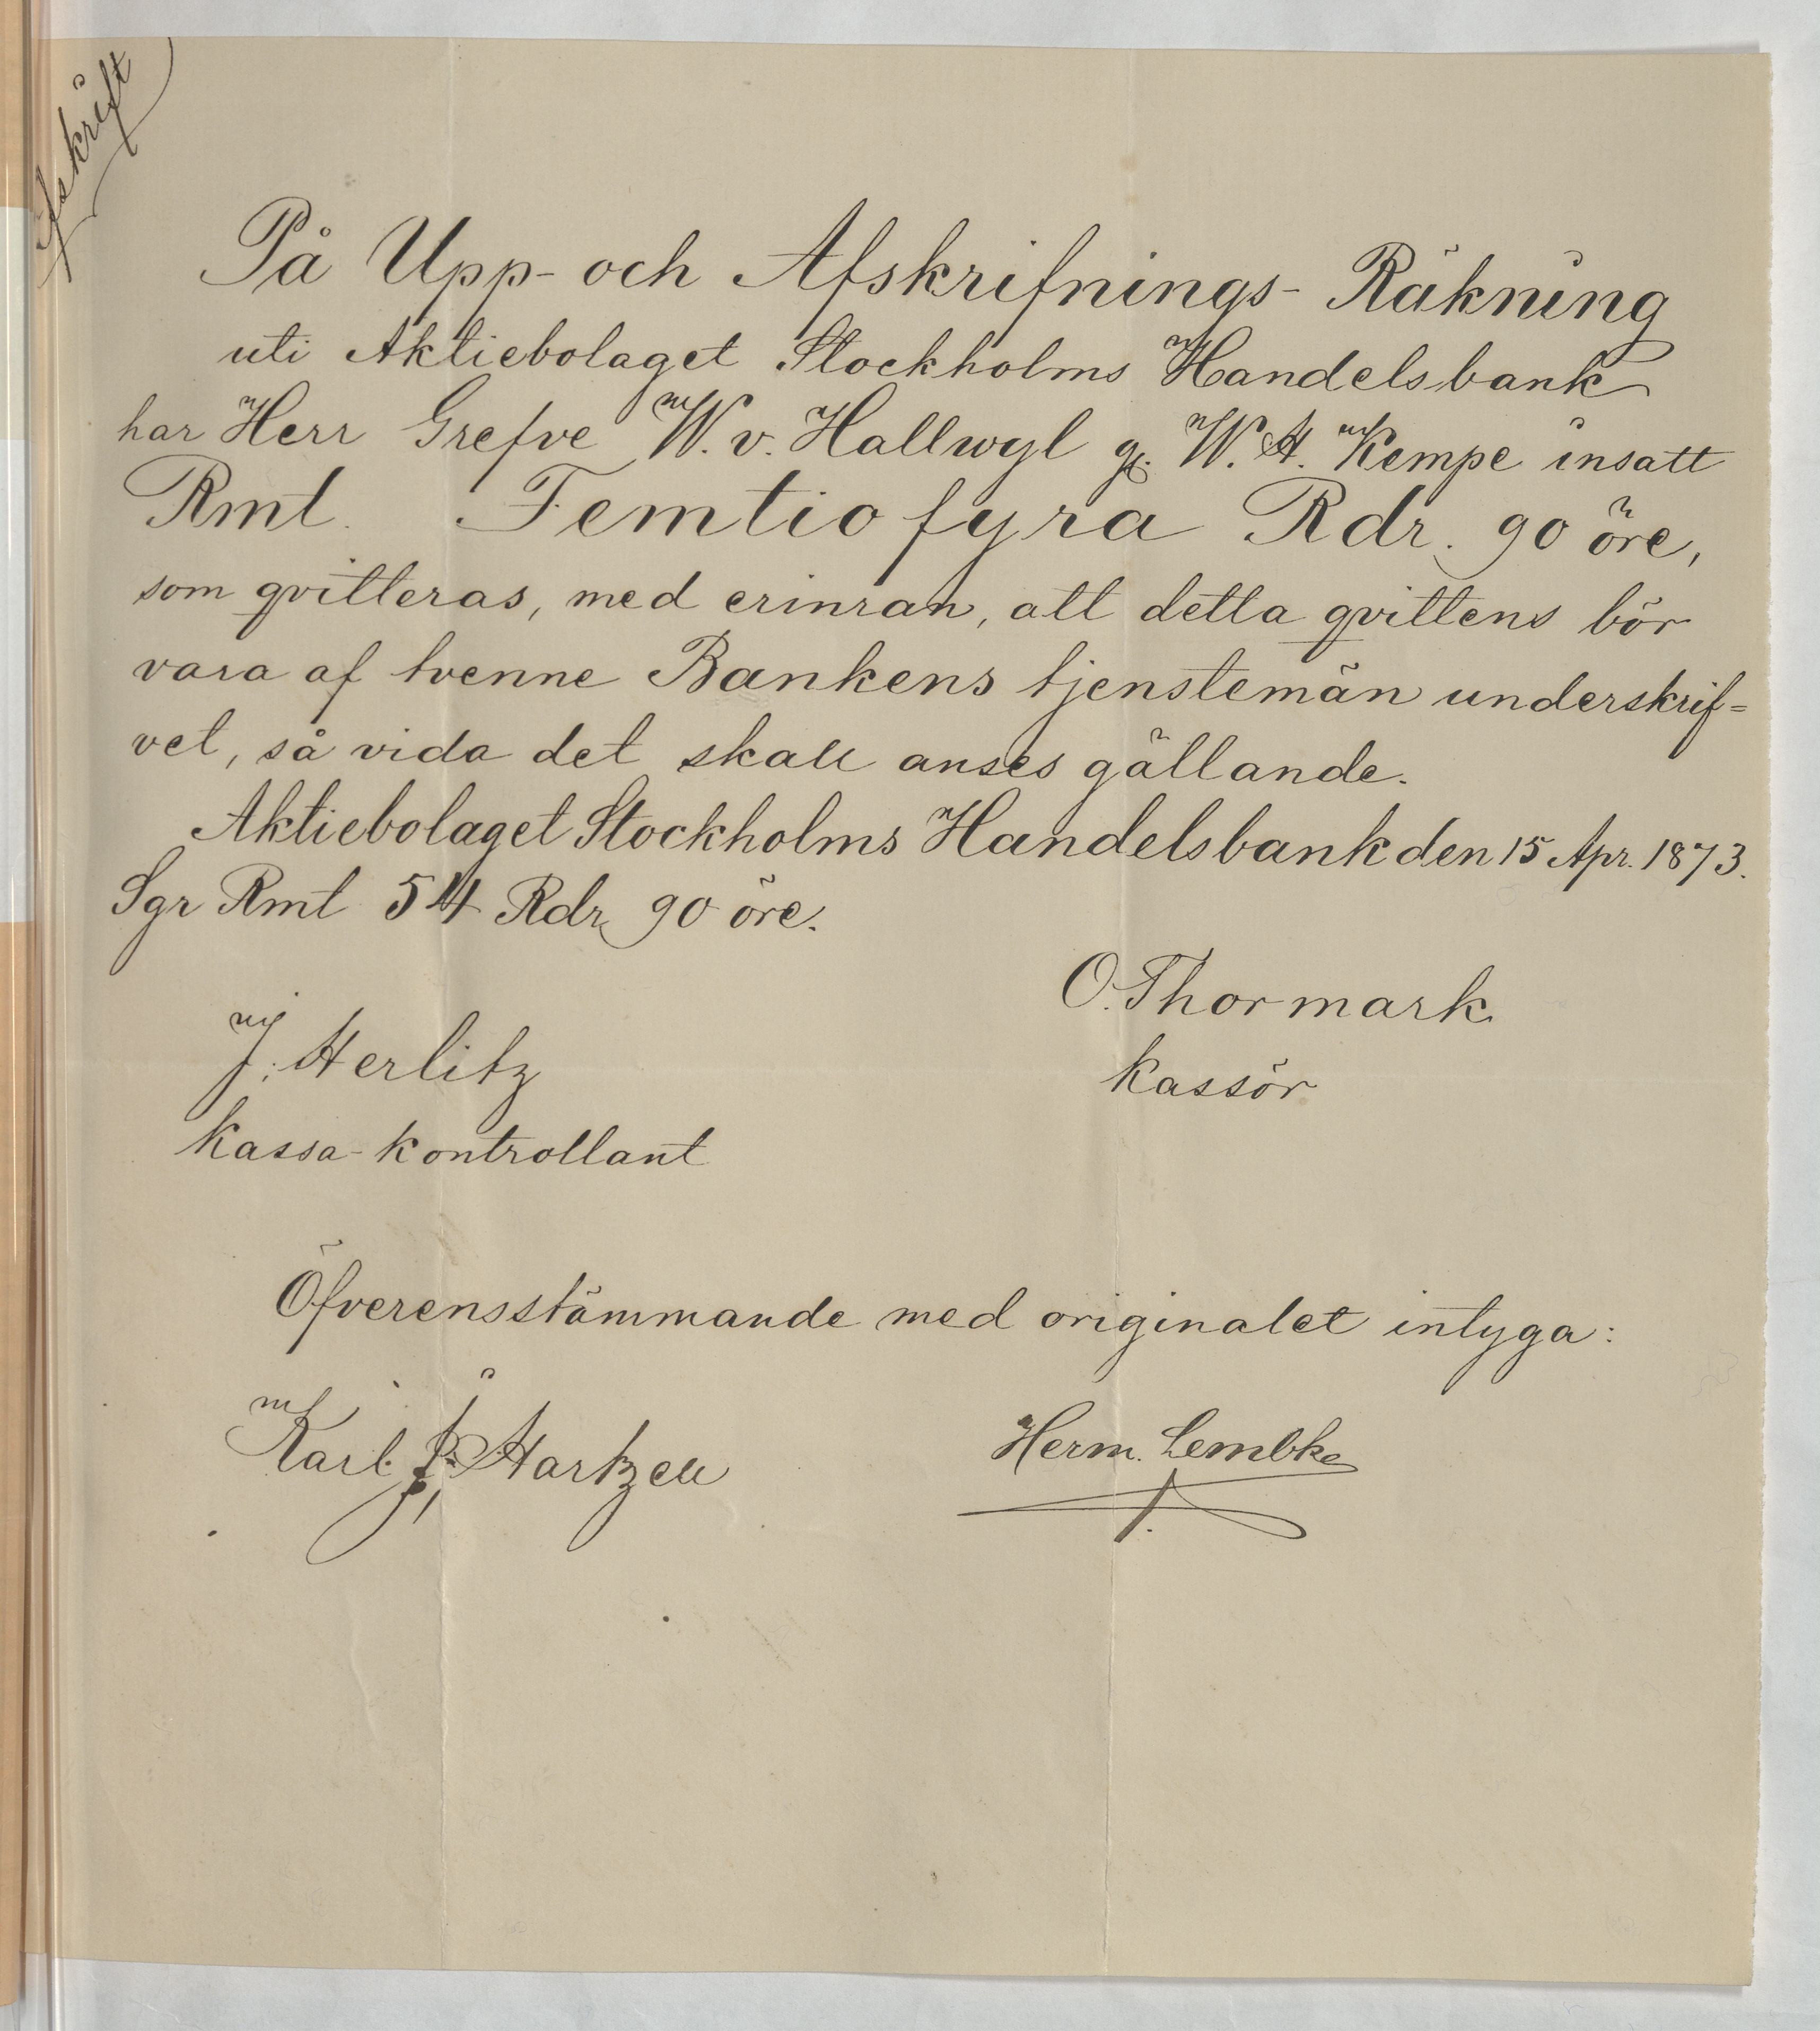 Afskrift
På Upp- och Afskrifnings- Räkning
uti Aktiebolaget Stockholms Handelsbank
har Herr Grefve W. v. Hallwyl g. W. H. Kempe insatt
Rmt. Femtiofyra Rdr. 90 öre,
som qvitteras, med erinran, att detta qvittens bör
vara af tvenne Bankens tjenstemän underskrif=
vet, så vida det skall anses gällande.
Aktiebolaget Stockholms Handelsbank den 15 Apr. 1873.
Sgr Rmt 54 Rdr 90 öre.
O. Thormark
Kassör
J. Herlitz
Kassa-kontrollant
Öfverensstämmande med originalet intyga:
Karl Hartzell
Herm. Lembke